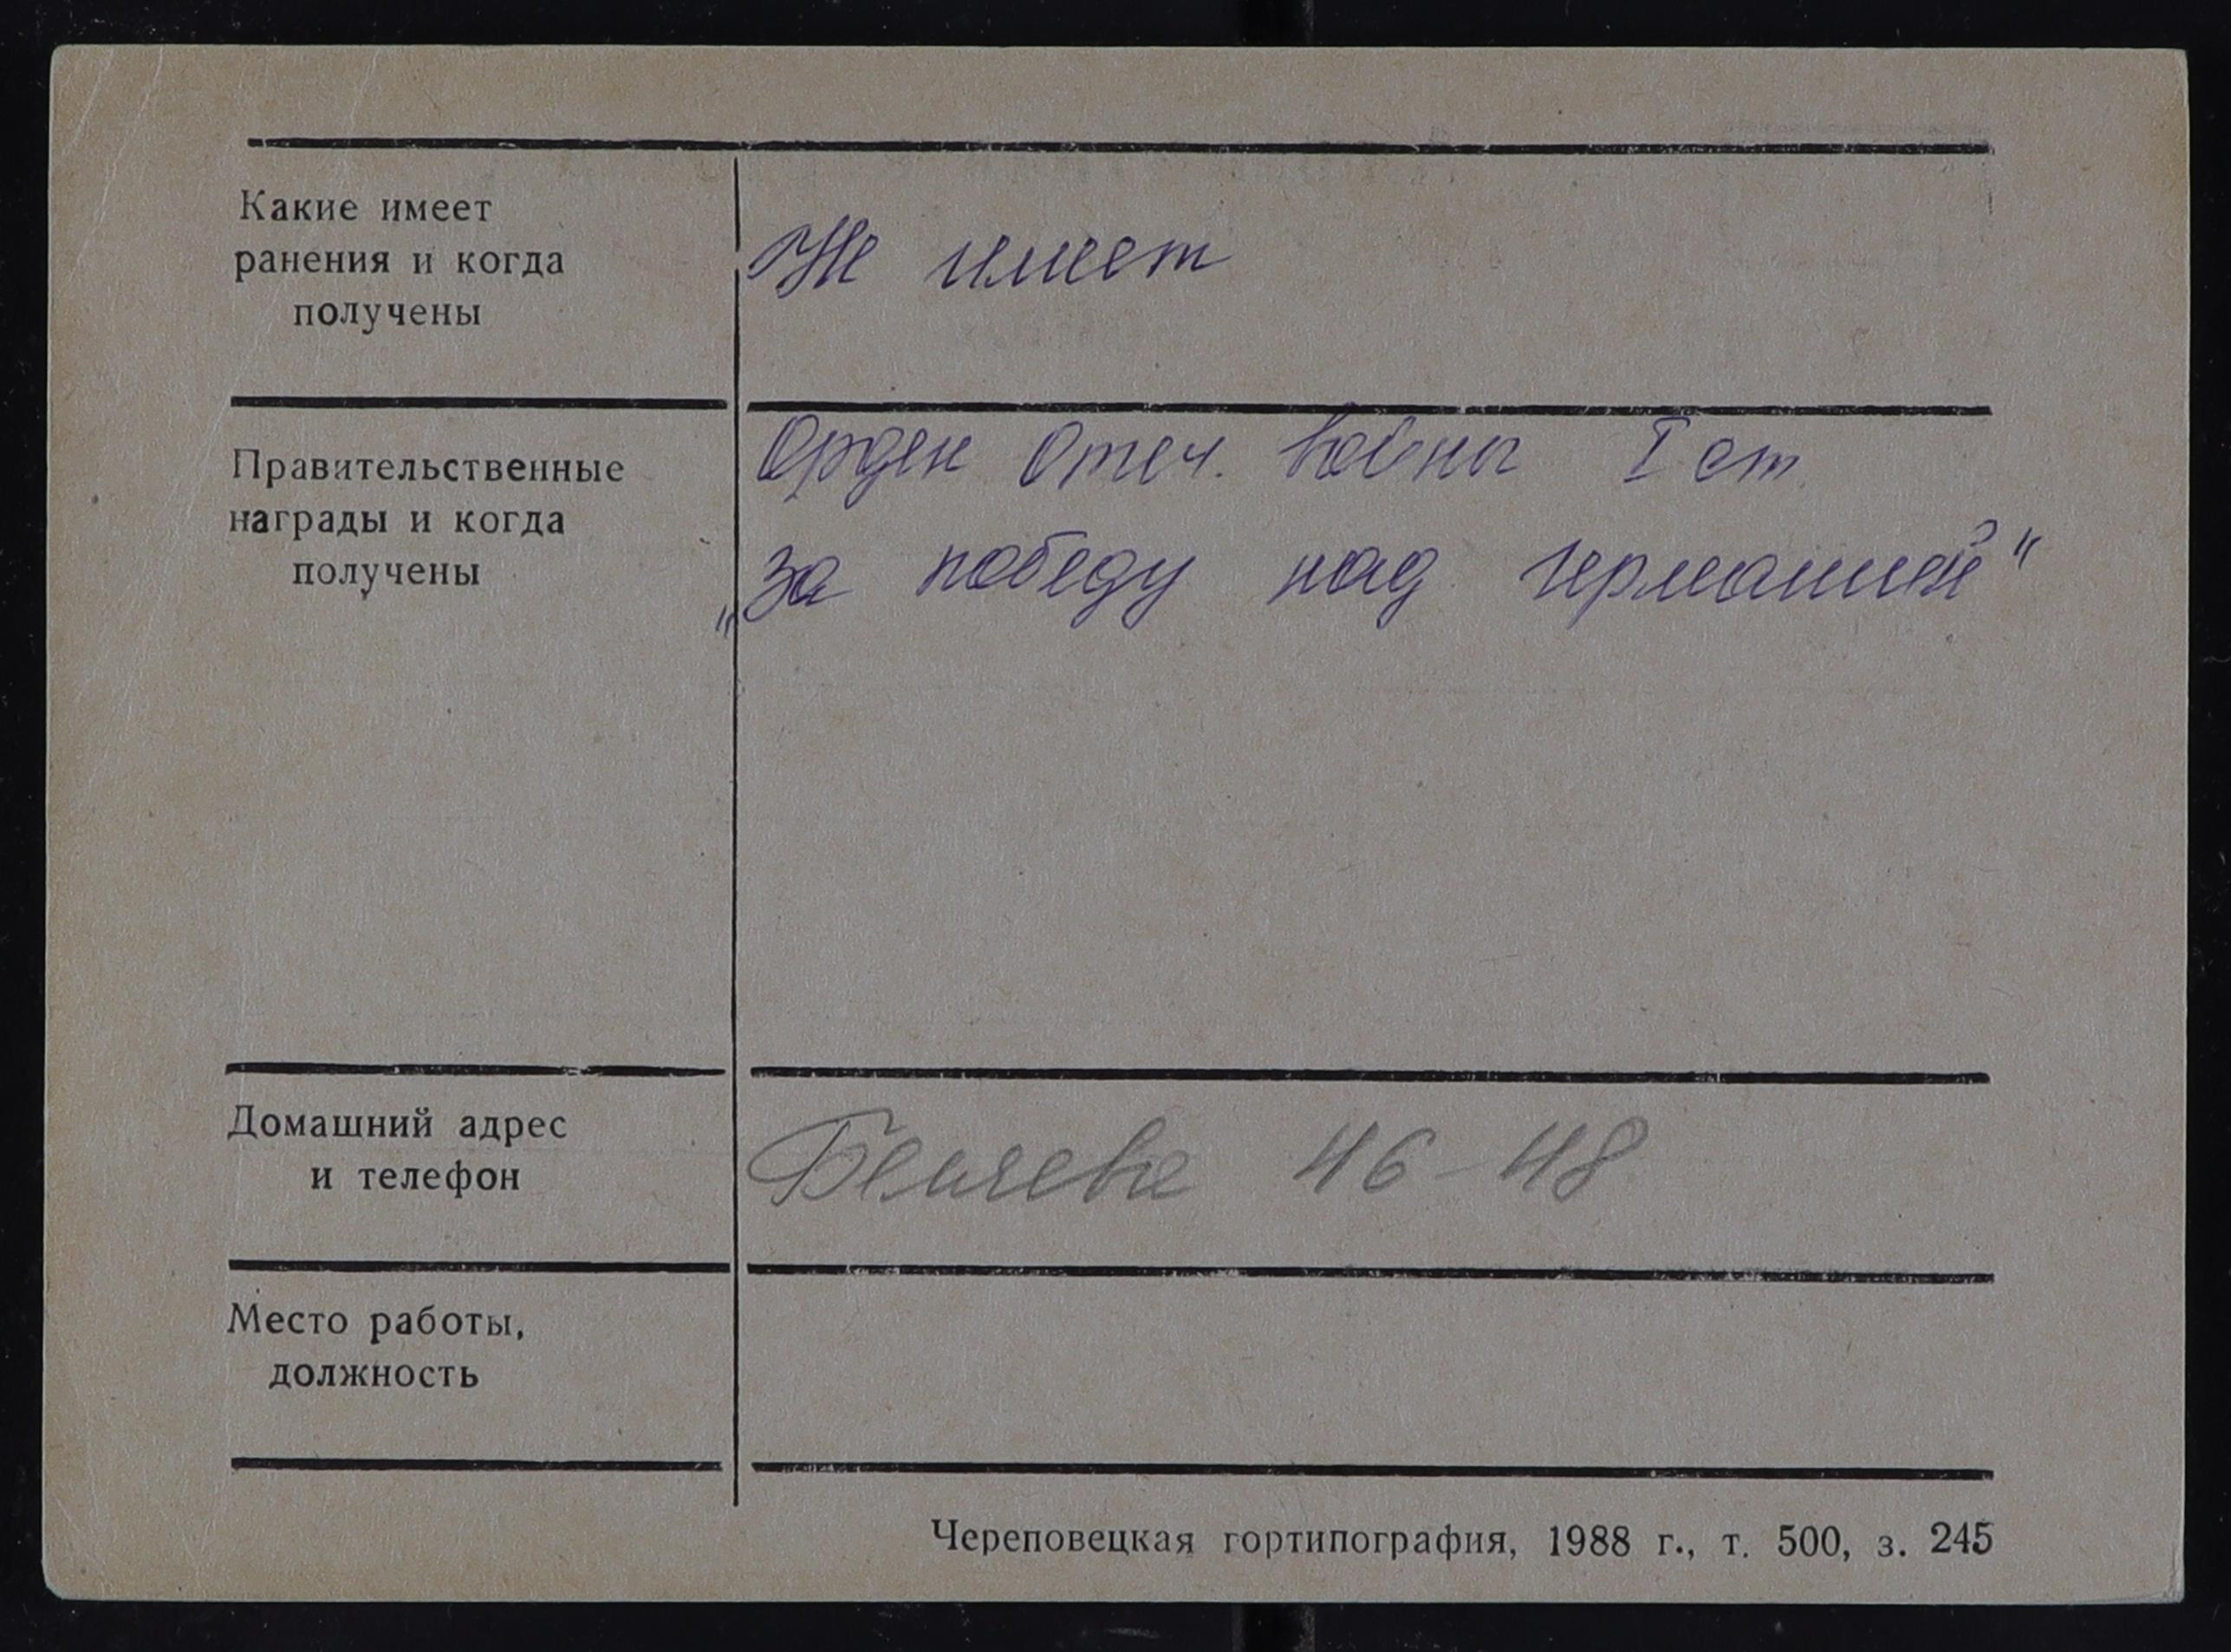 Какие имеет
ранения и когда
получены
Не имеет
Правительственные
награды и когда
получены
Орден Отеч. войны I ст.
„За победу над Германией"
Домашний адрес
и телефон
Беляева 46-48
Место работы,
должность
Череповецкая гортипография, 1988 г., т. 500, з. 245